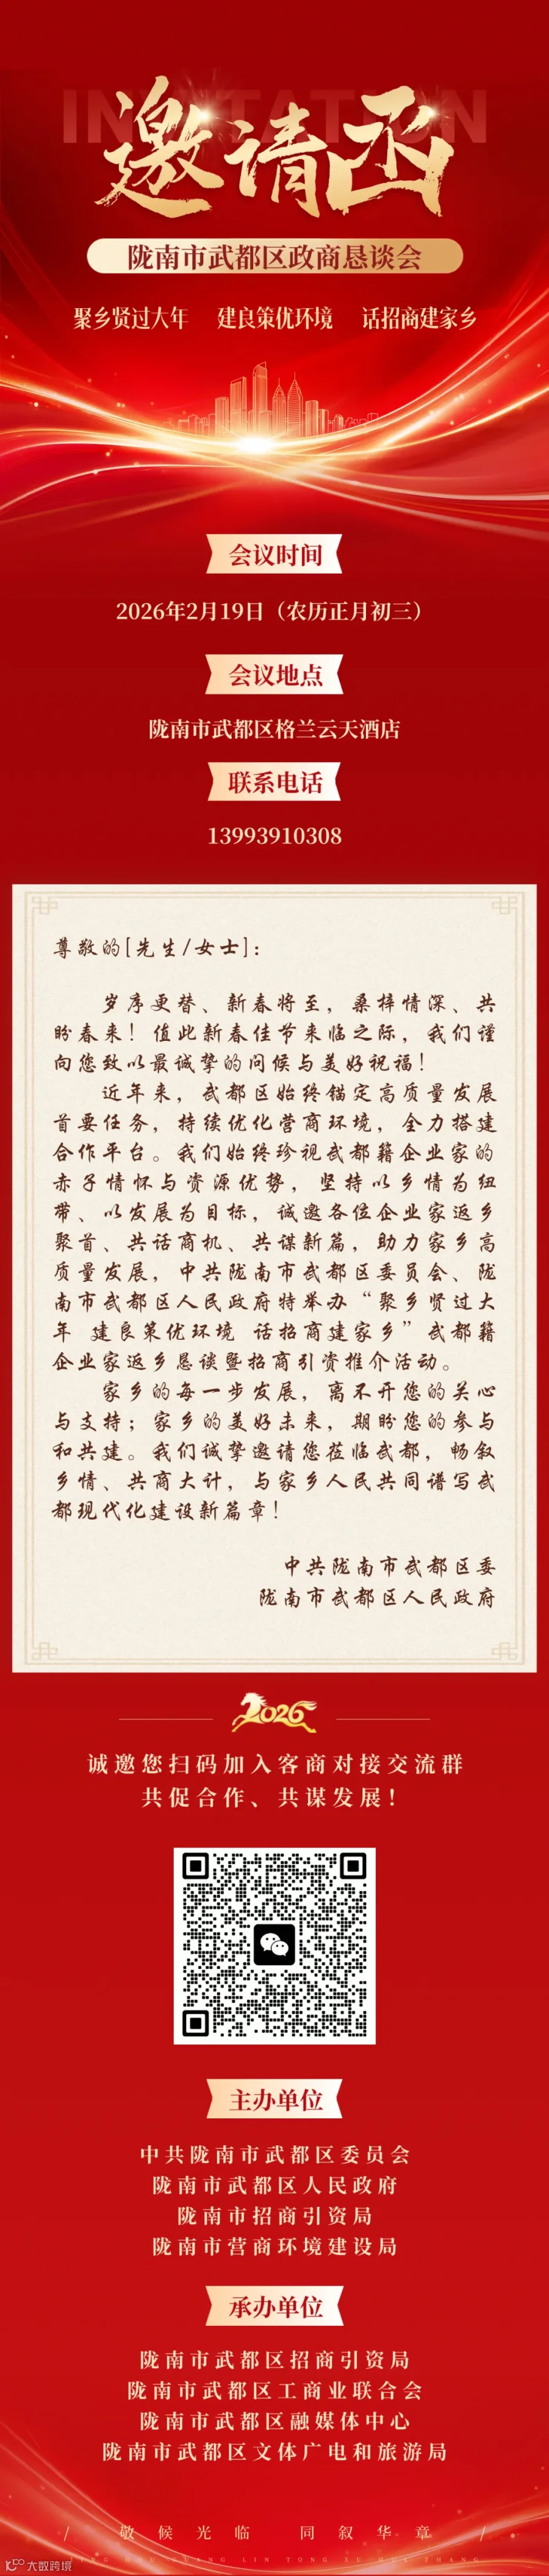 INVITATION
邀请函
陇南市武都区政商恳谈会
聚乡贤过大年 建良策优环境 话招商建家乡
会议时间
2026年2月19日（农历正月初三）
会议地点
陇南市武都区格兰云天酒店
联系电话
13993910308
尊敬的[先生/女士]：
岁序更替、新春将至，桑梓情深、共
盼春来！值此新春佳节来临之际，我们谨
向您致以最诚挚的问候与美好祝福！
近年来，武都区始终锚定高质量发展
首要任务，持续优化营商环境，全力搭建
合作平台。我们始终珍视武都籍企业家的
赤子情怀与资源优势，坚持以乡情为纽
带、以发展为目标，诚邀各位企业家返乡
聚首、共话商机、共谋新篇，助力家乡高
质量发展，中共陇南市武都区委员会、陇
南市武都区人民政府特举办“聚乡贤过大
年 建良策优环境 话招商建家乡”武都籍
企业家返乡恳谈暨招商引资推介活动。
家乡的每一步发展，离不开您的关心
与支持；家乡的美好未来，期盼您的参与
和共建。我们诚挚邀请您莅临武都，畅叙
乡情、共商大计，与家乡人民共同谱写武
都现代化建设新篇章！
中共陇南市武都区委
陇南市武都区人民政府
2026
诚邀您扫码加入客商对接交流群
共促合作、共谋发展！
主办单位
中共陇南市武都区委员会
陇南市武都区人民政府
陇南市招商引资局
陇南市营商环境建设局
承办单位
陇南市武都区招商引资局
陇南市武都区工商业联合会
陇南市武都区融媒体中心
陇南市武都区文体广电和旅游局
/ 敬候光临 同叙华章 /
大数跨境